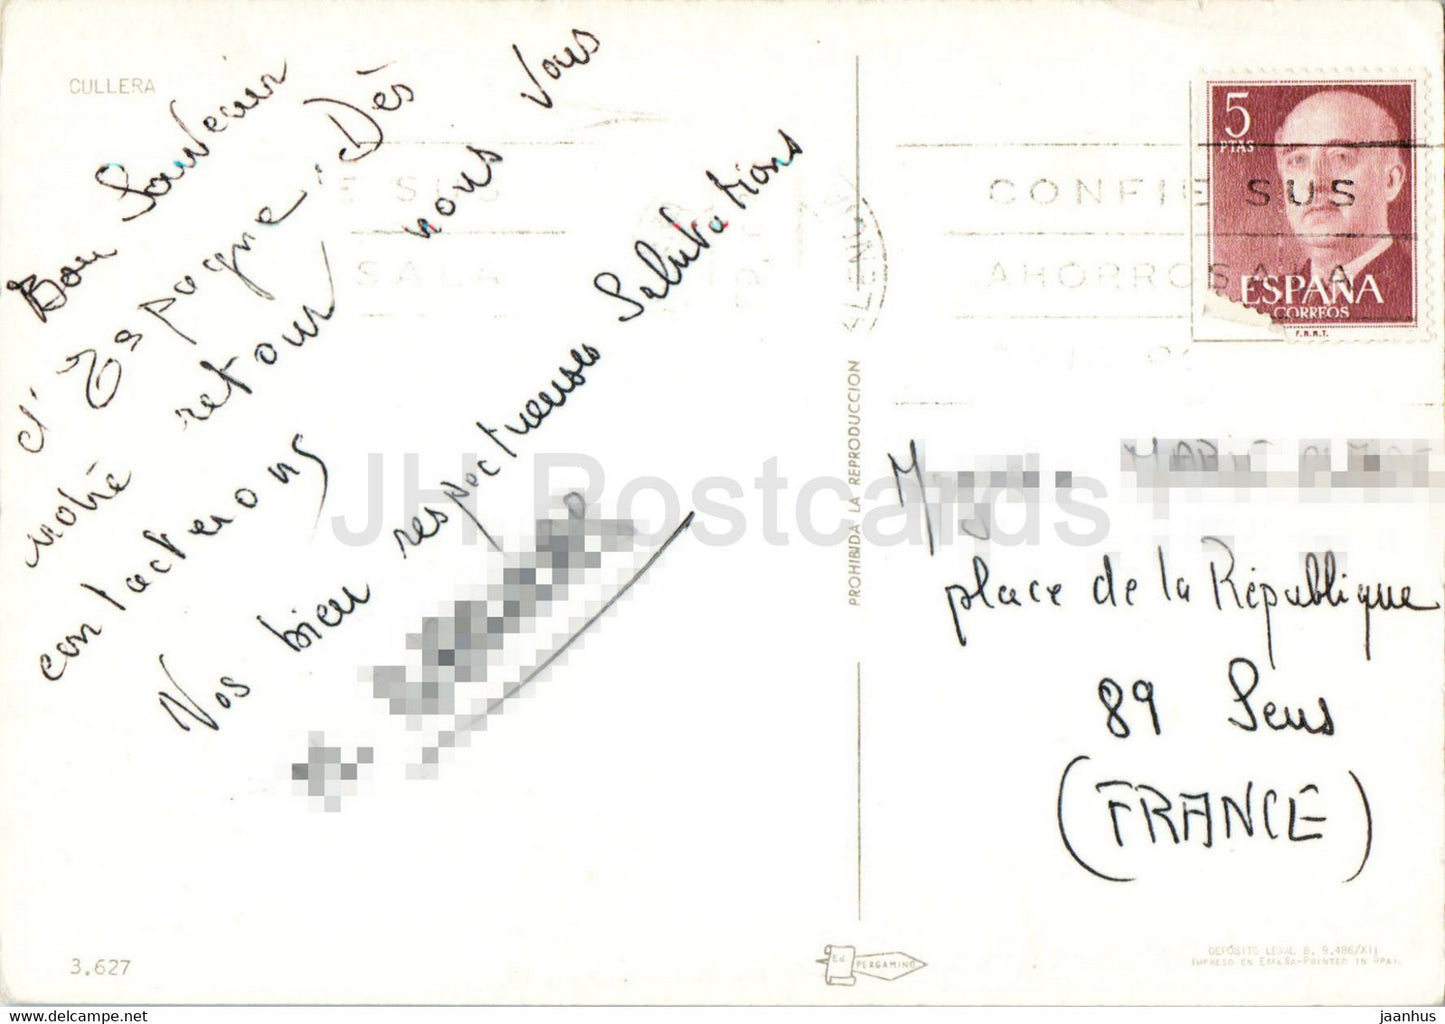 CULLERA
Bon Souvenir
d'Espagne. Dès
notre retour nous vous
contacterons
Nos bien respectueuses Salutations
3.627
PROHIBIDA LA REPRODUCCION
CONFIE SUS
AHORROS A LA
5
PTAS
ESPAÑA
CORREOS
F.N.M.T.
place de la République
89 Sens
(FRANCE)
Ed PERGAMINO
DEPÓSITO LEGAL B. 9.486/XII
IMPRESO EN ESPAÑA-PRINTED IN SPAIN
JH Postcards
jaanhus